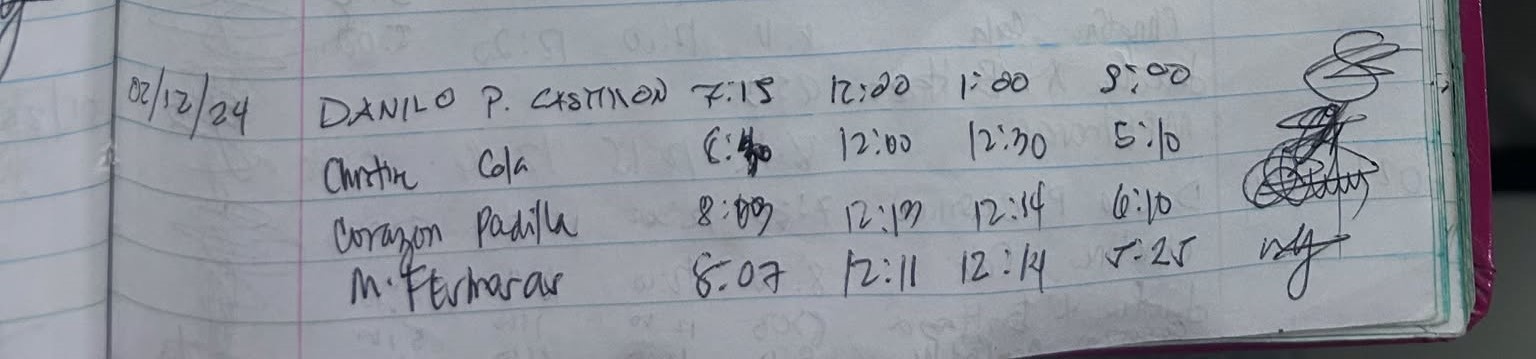 02/12/24 DANILO P. CASTILLON 7:15 12:00 1:00 5:00
Christin Cola 12:00 12:30 5:10
Corazon Padilla 8:09 12:13 12:14 6:10
M. 8:07 12:11 12:14 5:25